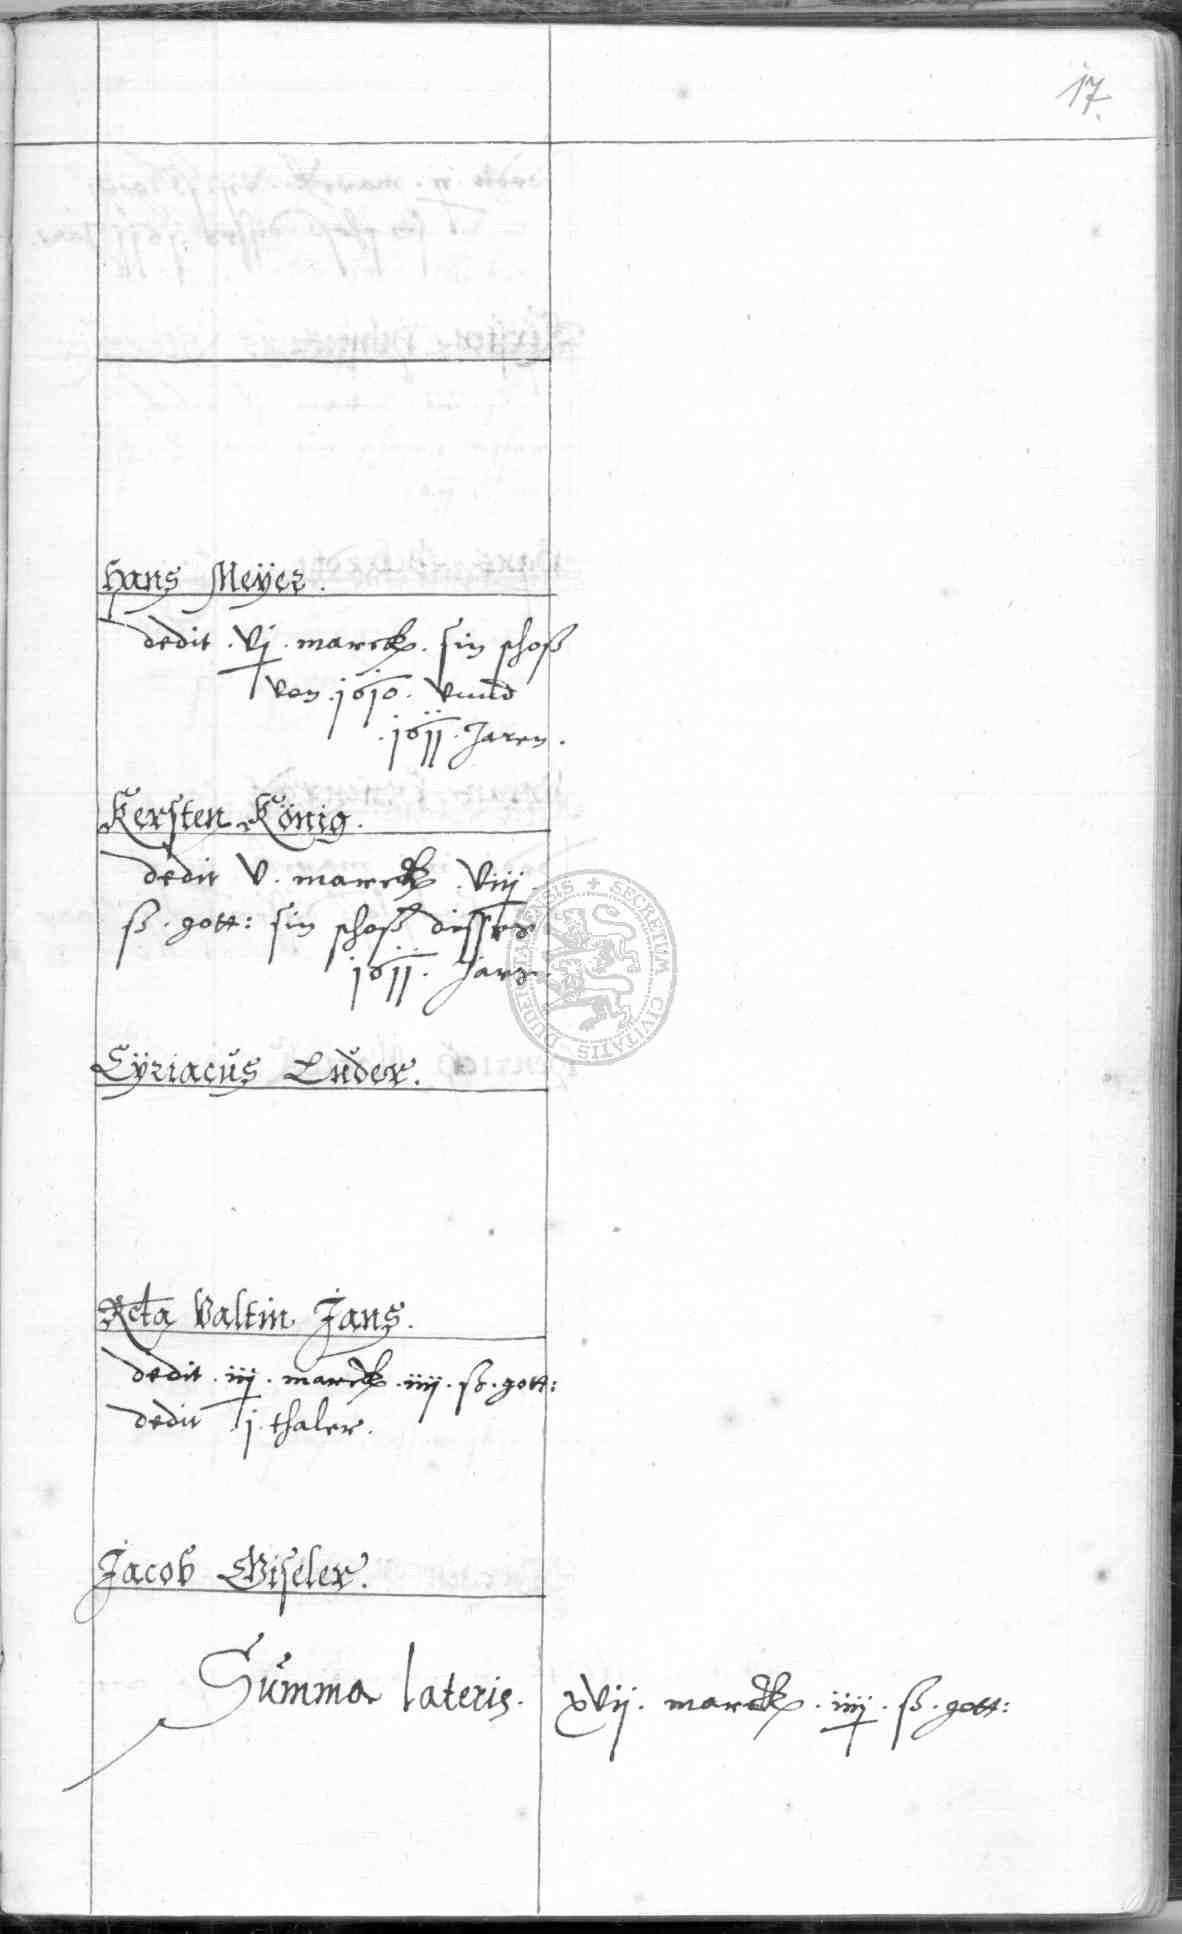 17.
Hans Meÿer.
dedit . vj . marck . sin schoß
von . 1610 . vnnd
. 1611 . Jaren .
Kersten König.
dedit v . marck . viij .
ß . gott: sin schoß disses
1611 . Jars .
Cÿriacus Luder.
Rcta Valtin Jans.
dedit . iij . marck . iiij . ß . gott:
dedit . j . thaler .
Jacob Giseler.
Summa lateris. xvij . marck . iiij . ß . gott:
SECRETUM CIVITATIS